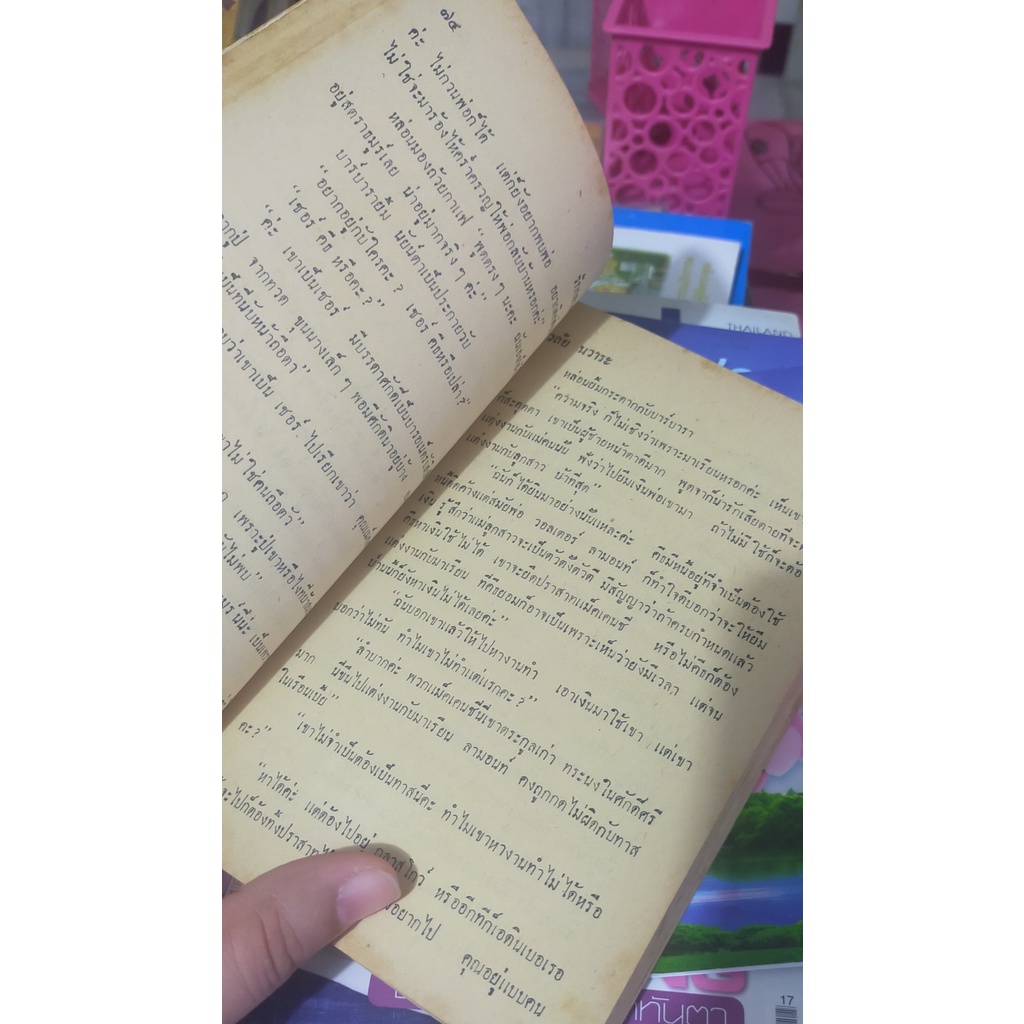 ๗๕
ค่ะ ไม่กวนพ่อก็ได้ แต่ก็ยังอยากพบพ่อ
ไม่ใช่จะมาร้องไห้คร่ำครวญให้พ่อกลับบ้านหรอกค่ะ”
หล่อนมองถ้วยกาแฟ “พูดตรง ๆ นะคะ
อยู่สตราธมูร์เลย น่าอยู่มากจริง ๆ ค่ะ”
บาร์บารายิ้ม นัยน์ตาเป็นประกายวับ
“อยากอยู่กับใครคะ? เซอร์ คีธหรือเปล่า?”
“เซอร์ คีธ หรือคะ?”
“ค่ะ เขาเป็นเซอร์ มีบรรดาศักดิ์เป็นบารอเนต
จากทวด ขุนนางเล็ก ๆ พอมีศักดินาอยู่บ้าง
เป็นที่นับหน้าถือตา”
ว่าเขาเป็น เซอร์ ไปเรียกเขาว่า คุณ
ไม่ใช่คนถือตัว”
เพราะปู่เขาหรือไง
ไม่พบ”
วลัย นวาระ
หล่อนยิ้มกระดากกับบาร์บารา
“ความจริง ก็ไม่เชิงว่าเพราะมาเรียนหรอกค่ะ เห็นเขา
ก็สะดุดตา เขาเป็นผู้ชายหน้าตาดีมาก พูดจาก็น่ารักเสียดายที่จะ
แต่งงานกับแม่คนนั้น ฟังว่าไปยืมเงินพ่อเขามา ถ้าไม่มีใช้ก็จะต้อง
แต่งงานกับลูกสาว บ้าที่สุด”
“ฉันก็ได้ยินมาอย่างนั้นแหละค่ะ คีธมีหนี้อยู่ที่จำเป็นต้องใช้
หนี้ติดค้างแต่สมัยพ่อ วอลเตอร์ ลามอนท์ ก็ทำใจดีบอกว่าจะให้ยืม
เงิน รู้สึกว่าแม่ลูกสาวจะเป็นตัวตั้งตัวตี มีสัญญาว่าถ้าครบกำหนดแล้ว
คีธหาเงินใช้ไม่ได้ เขาจะยึดปราสาทแม็คเคนซี่ หรือไม่คีธก็ต้อง
แต่งงานกับมาเรียน ที่คีธยอมก็อาจเป็นเพราะเห็นว่ายังมีเวลา แต่จน
บ้านนี้ก็ยังหาเงินไม่ได้เลยค่ะ”
“ฉันบอกเขาแล้วให้ไปหางานทำ เอาเงินมาใช้เขา แต่เขา
บอกว่าไม่ทัน ทำไมเขาไม่ทำแต่แรกคะ?”
“ลำบากค่ะ พวกแม็คเคนซี่นี่เขาตระกูลเก่า ทระนงในศักดิ์ศรี
มาก นี่ขืนไปแต่งงานกับมาเรียน ลามอนท์ คงถูกกดไม่ผิดกับทาส
ในเรือนเบี้ย”
“เขาไม่จำเป็นต้องเป็นทาสนี่คะ ทำไมเขาหางานทำไม่ได้หรือ
คะ?”
“หาได้ค่ะ แต่ต้องไปอยู่ กลาสโกว์ หรืออีกทีก็เอดินเบอเรอ
จะไปก็ต้องทิ้งปราสาท อยากไป คุณอยู่แบบคน
THAILAND
17